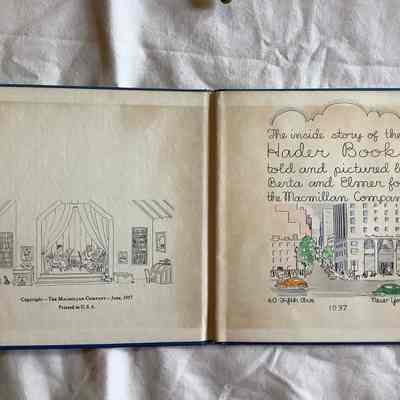 Copyright — The Macmillan Company — June, 1937
Printed in U. S. A.
The inside story of the
Hader Book
told and pictured b
Berta and Elmer fo
the Macmillan Compan
60 Fifth Ave New Yo
1937